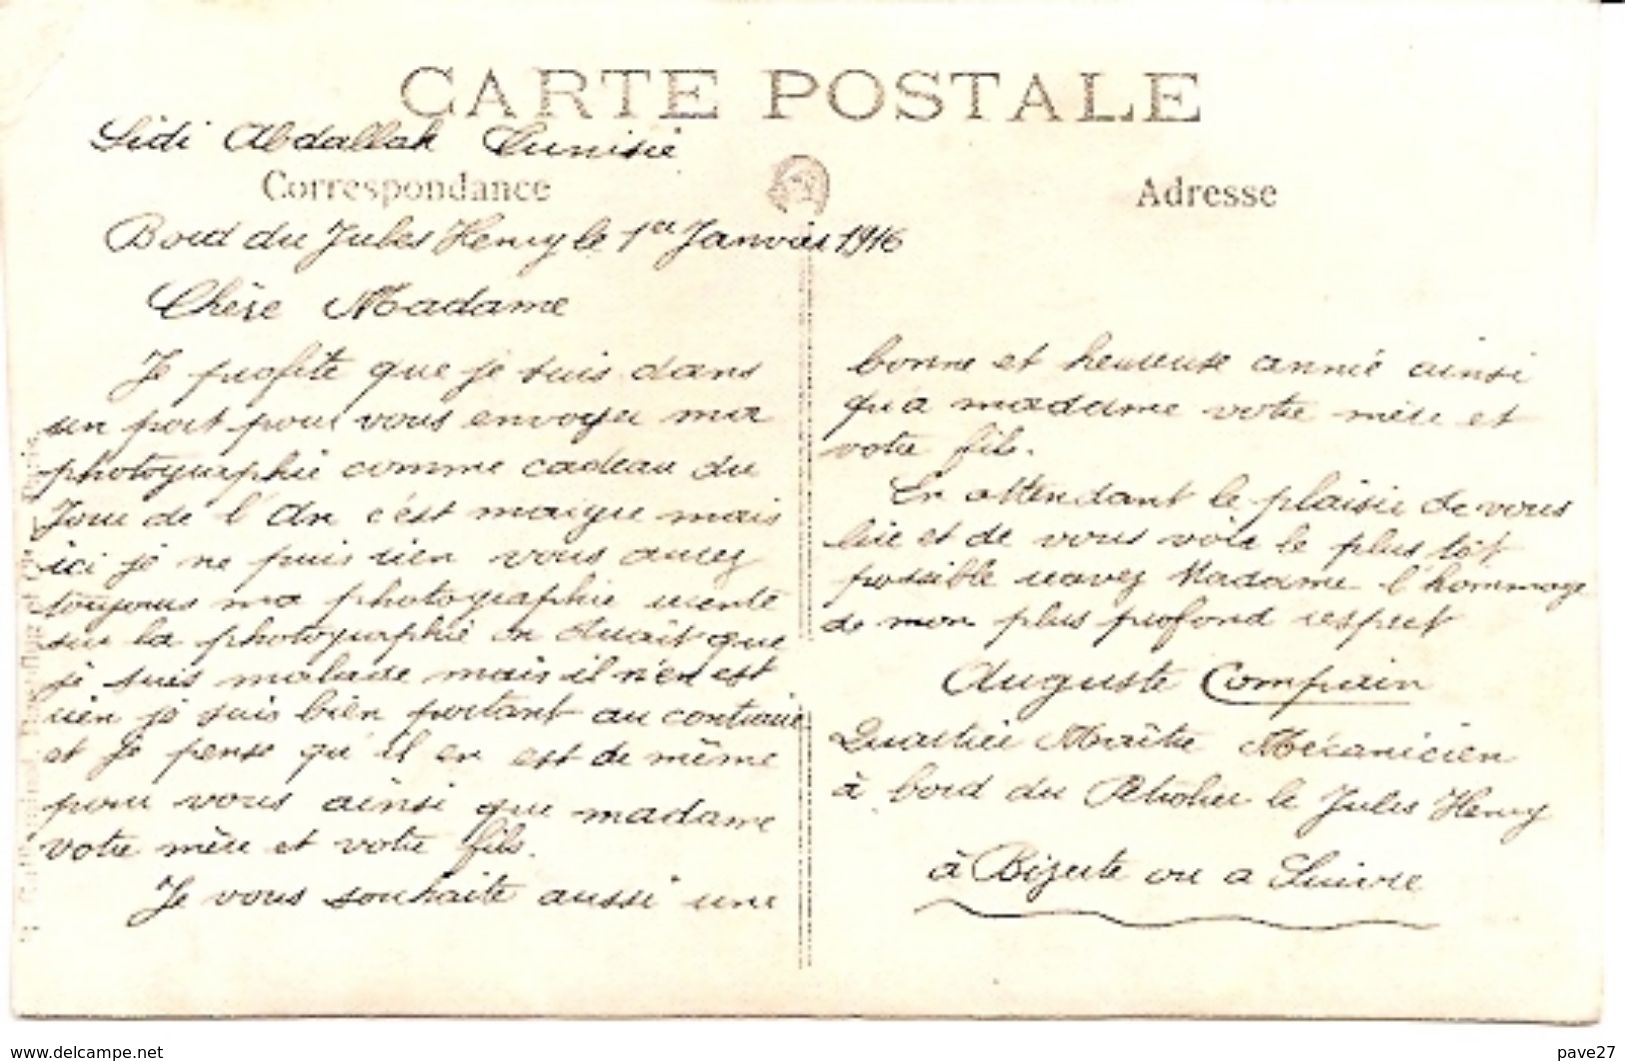 CARTE POSTALE
Sidi Abdallah Tunisie
Correspondance
Adresse
Bord du Jules Henry le 1er Janvier 1916
Chère Madame
Je profite que je suis dans
un port pour vous envoyer ma
photographie comme cadeau du
Jour de l'An c'est maigre mais
ici je ne puis rien vous aurez
toujours ma photographie récente
sur la photographie on dirait que
je suis malade mais il n'en est
rien je suis bien portant au contraire
et je pense qu'il en est de même
pour vous ainsi que madame
votre mère et votre fils.
Je vous souhaite aussi une
bonne et heureuse année ainsi
qu'a madame votre mère et
votre fils.
En attendant le plaisir de vous
lire et de vous voir le plus tôt
possible recevez Madame l'hommage
de mon plus profond respect
Auguste Compain
Quartier Maître Mécanicien
à bord du Pétrolier le Jules Henry
à Bizerte ou a Suivre
www.delcampe.net
pave27